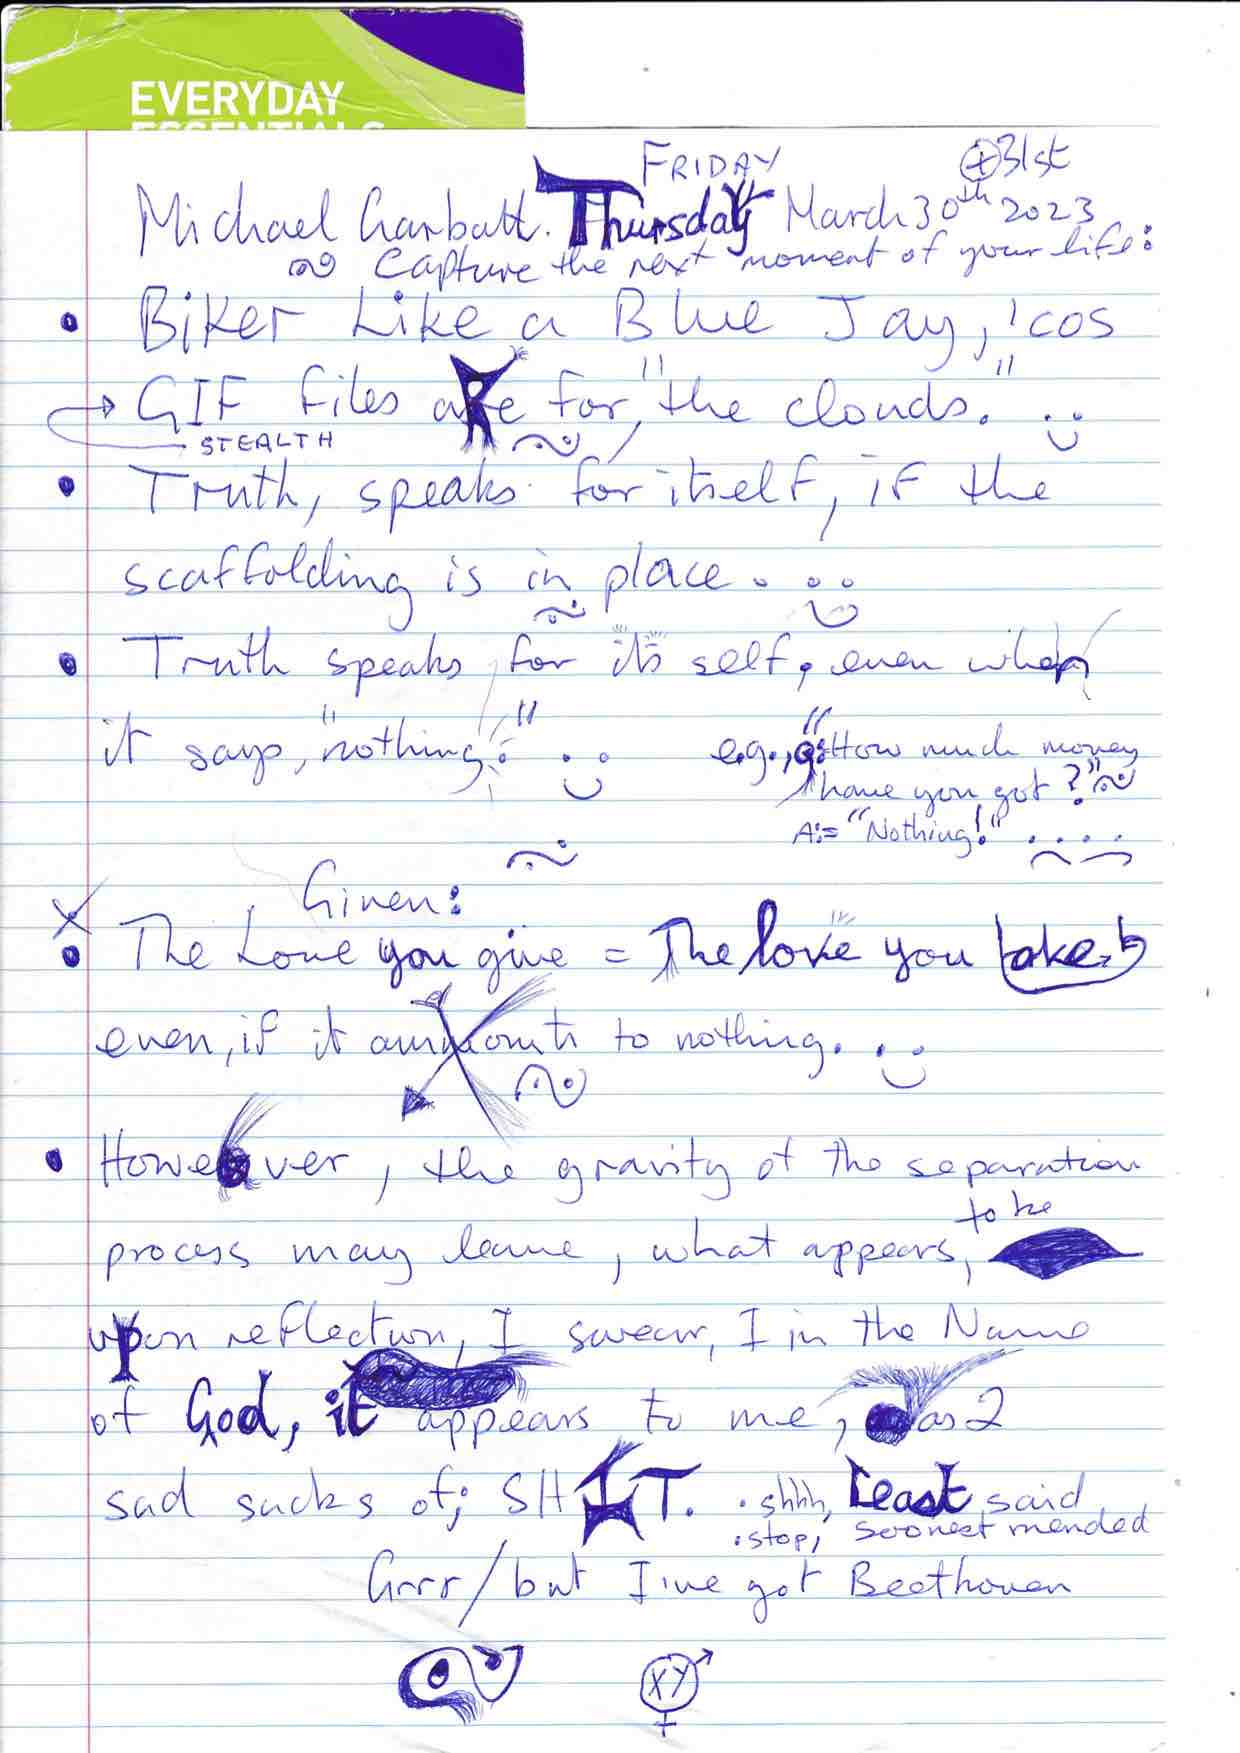 EVERYDAY
ESSENTIALS
FRIDAY
+31st
Michael Garbutt. Thursday March 30th 2023
Capture the next moment of your life:
• Biker Like a Blue Jay, 'cos
GIF files are for, "the clouds."
STEALTH
• Truth, speaks for itself, if the
scaffolding is in place.
• Truth speaks, for its self, even when
it says, "nothing."
e.g., "Q: How much money
have you got?"
A:= "Nothing!"
Given:
• The Love you give = The love you take,
even, if it amounts to nothing.
• However, the gravity of the separation
process may leave, what appears, to be
upon reflection, I swear, I in the Name
of God, it appears to me, as 2
sad sacks of; SHIT. . shhh, Least said
. stop, soonest mended
Grrr/but I've got Beethoven
XY